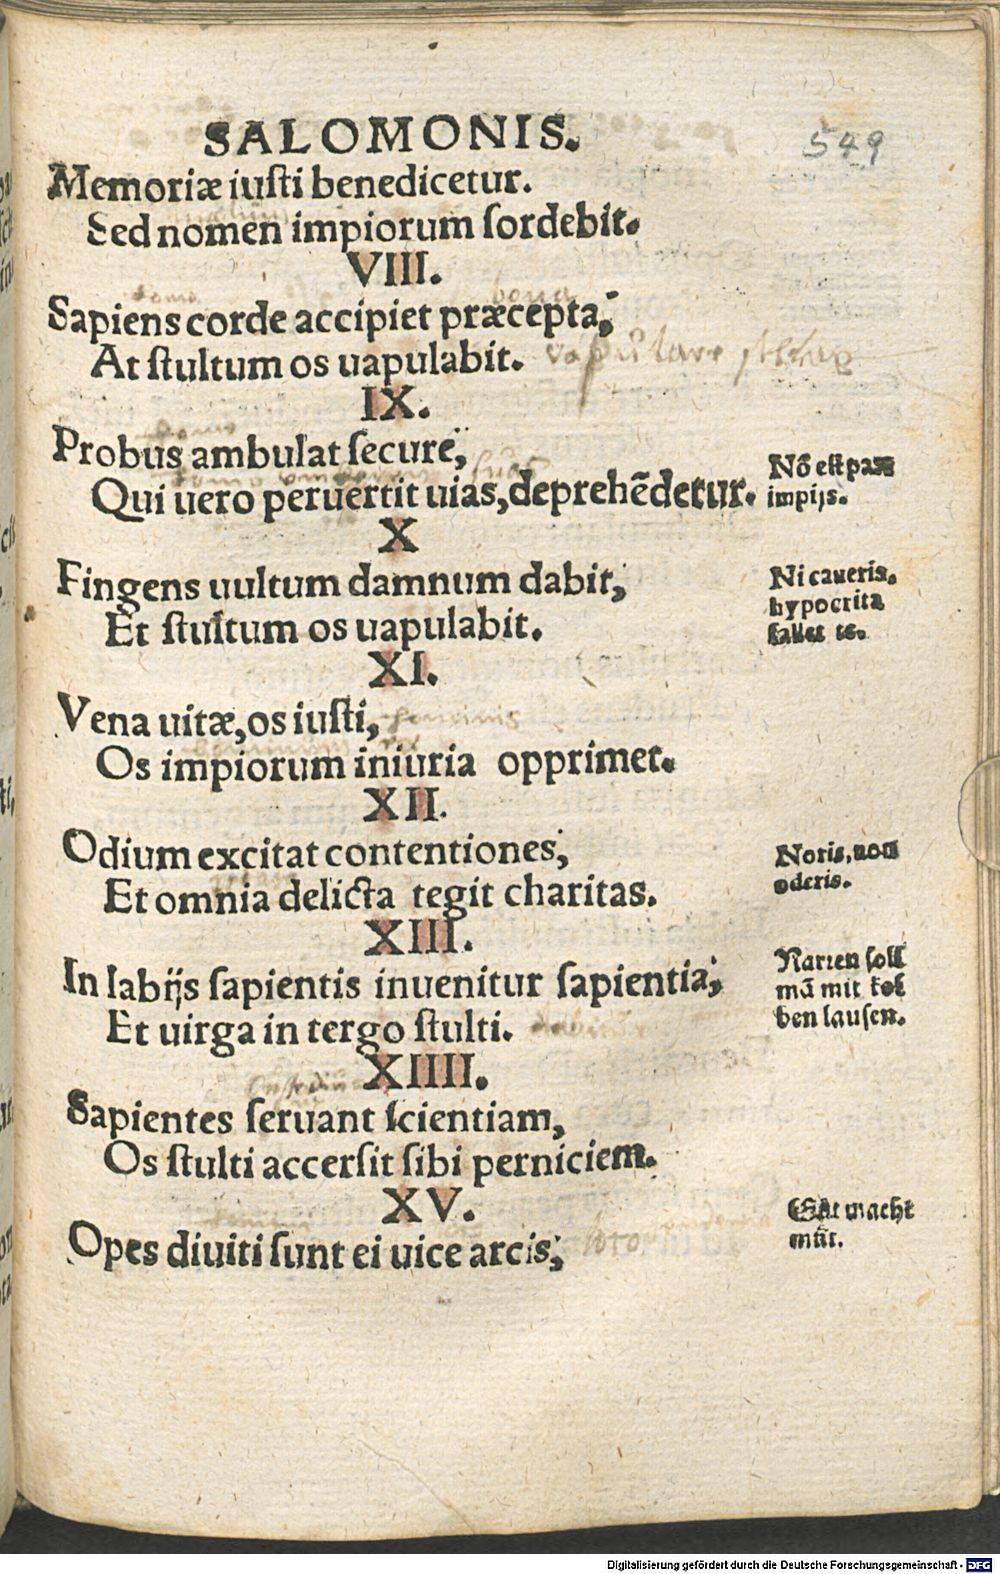 SALOMONIS.
549
Memoriæ iuſti benedicetur.
Sed nomen impiorum ſordebit.
VIII.
bona
Sapiens corde accipiet præcepta;
At ſtultum os uapulabit.
IX.
Probus ambulat ſecure,
Qui uero peruertit uias, deprehẽdetur.
Nõ eſt pax
impijs.
X
Fingens uultum damnum dabit,
Et ſtultum os uapulabit.
Ni caueris.
hypocrita
fallet te.
XI.
Vena uitæ, os iuſti,
hominis
Os impiorum iniuria opprimet.
XII.
Odium excitat contentiones,
Et omnia delicta tegit charitas.
Noris, non
oderis.
XIII.
In labijs ſapientis inuenitur ſapientia;
Et uirga in tergo ſtulti.
Narren ſoll
mã mit kol
ben lauſen.
XIIII.
Sapientes ſeruant ſcientiam,
Os ſtulti accerſit ſibi perniciem.
XV.
Opes diuiti ſunt ei uice arcis,
loro
Gůt macht
můt.
Digitalisierung gefördert durch die Deutsche Forschungsgemeinschaft - DFG